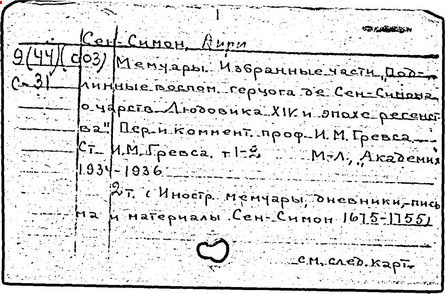 Сен-Симон, Анри
9(44)(003) Мемуары. Избранные части „Под-
С-31 линные воспом. герцога де Сен-Симона
о царств. Людовика XIV и эпохе регенст
ва". Пер. и коммент. проф. И.М. Гревса
Ст. И.М. Гревса. т 1-2 М-Л., „Academia
1934-1936
2т. (Иностр. мемуары, дневники, пись
ма и материалы. Сен-Симон 1675-1755)
см. след. карт.